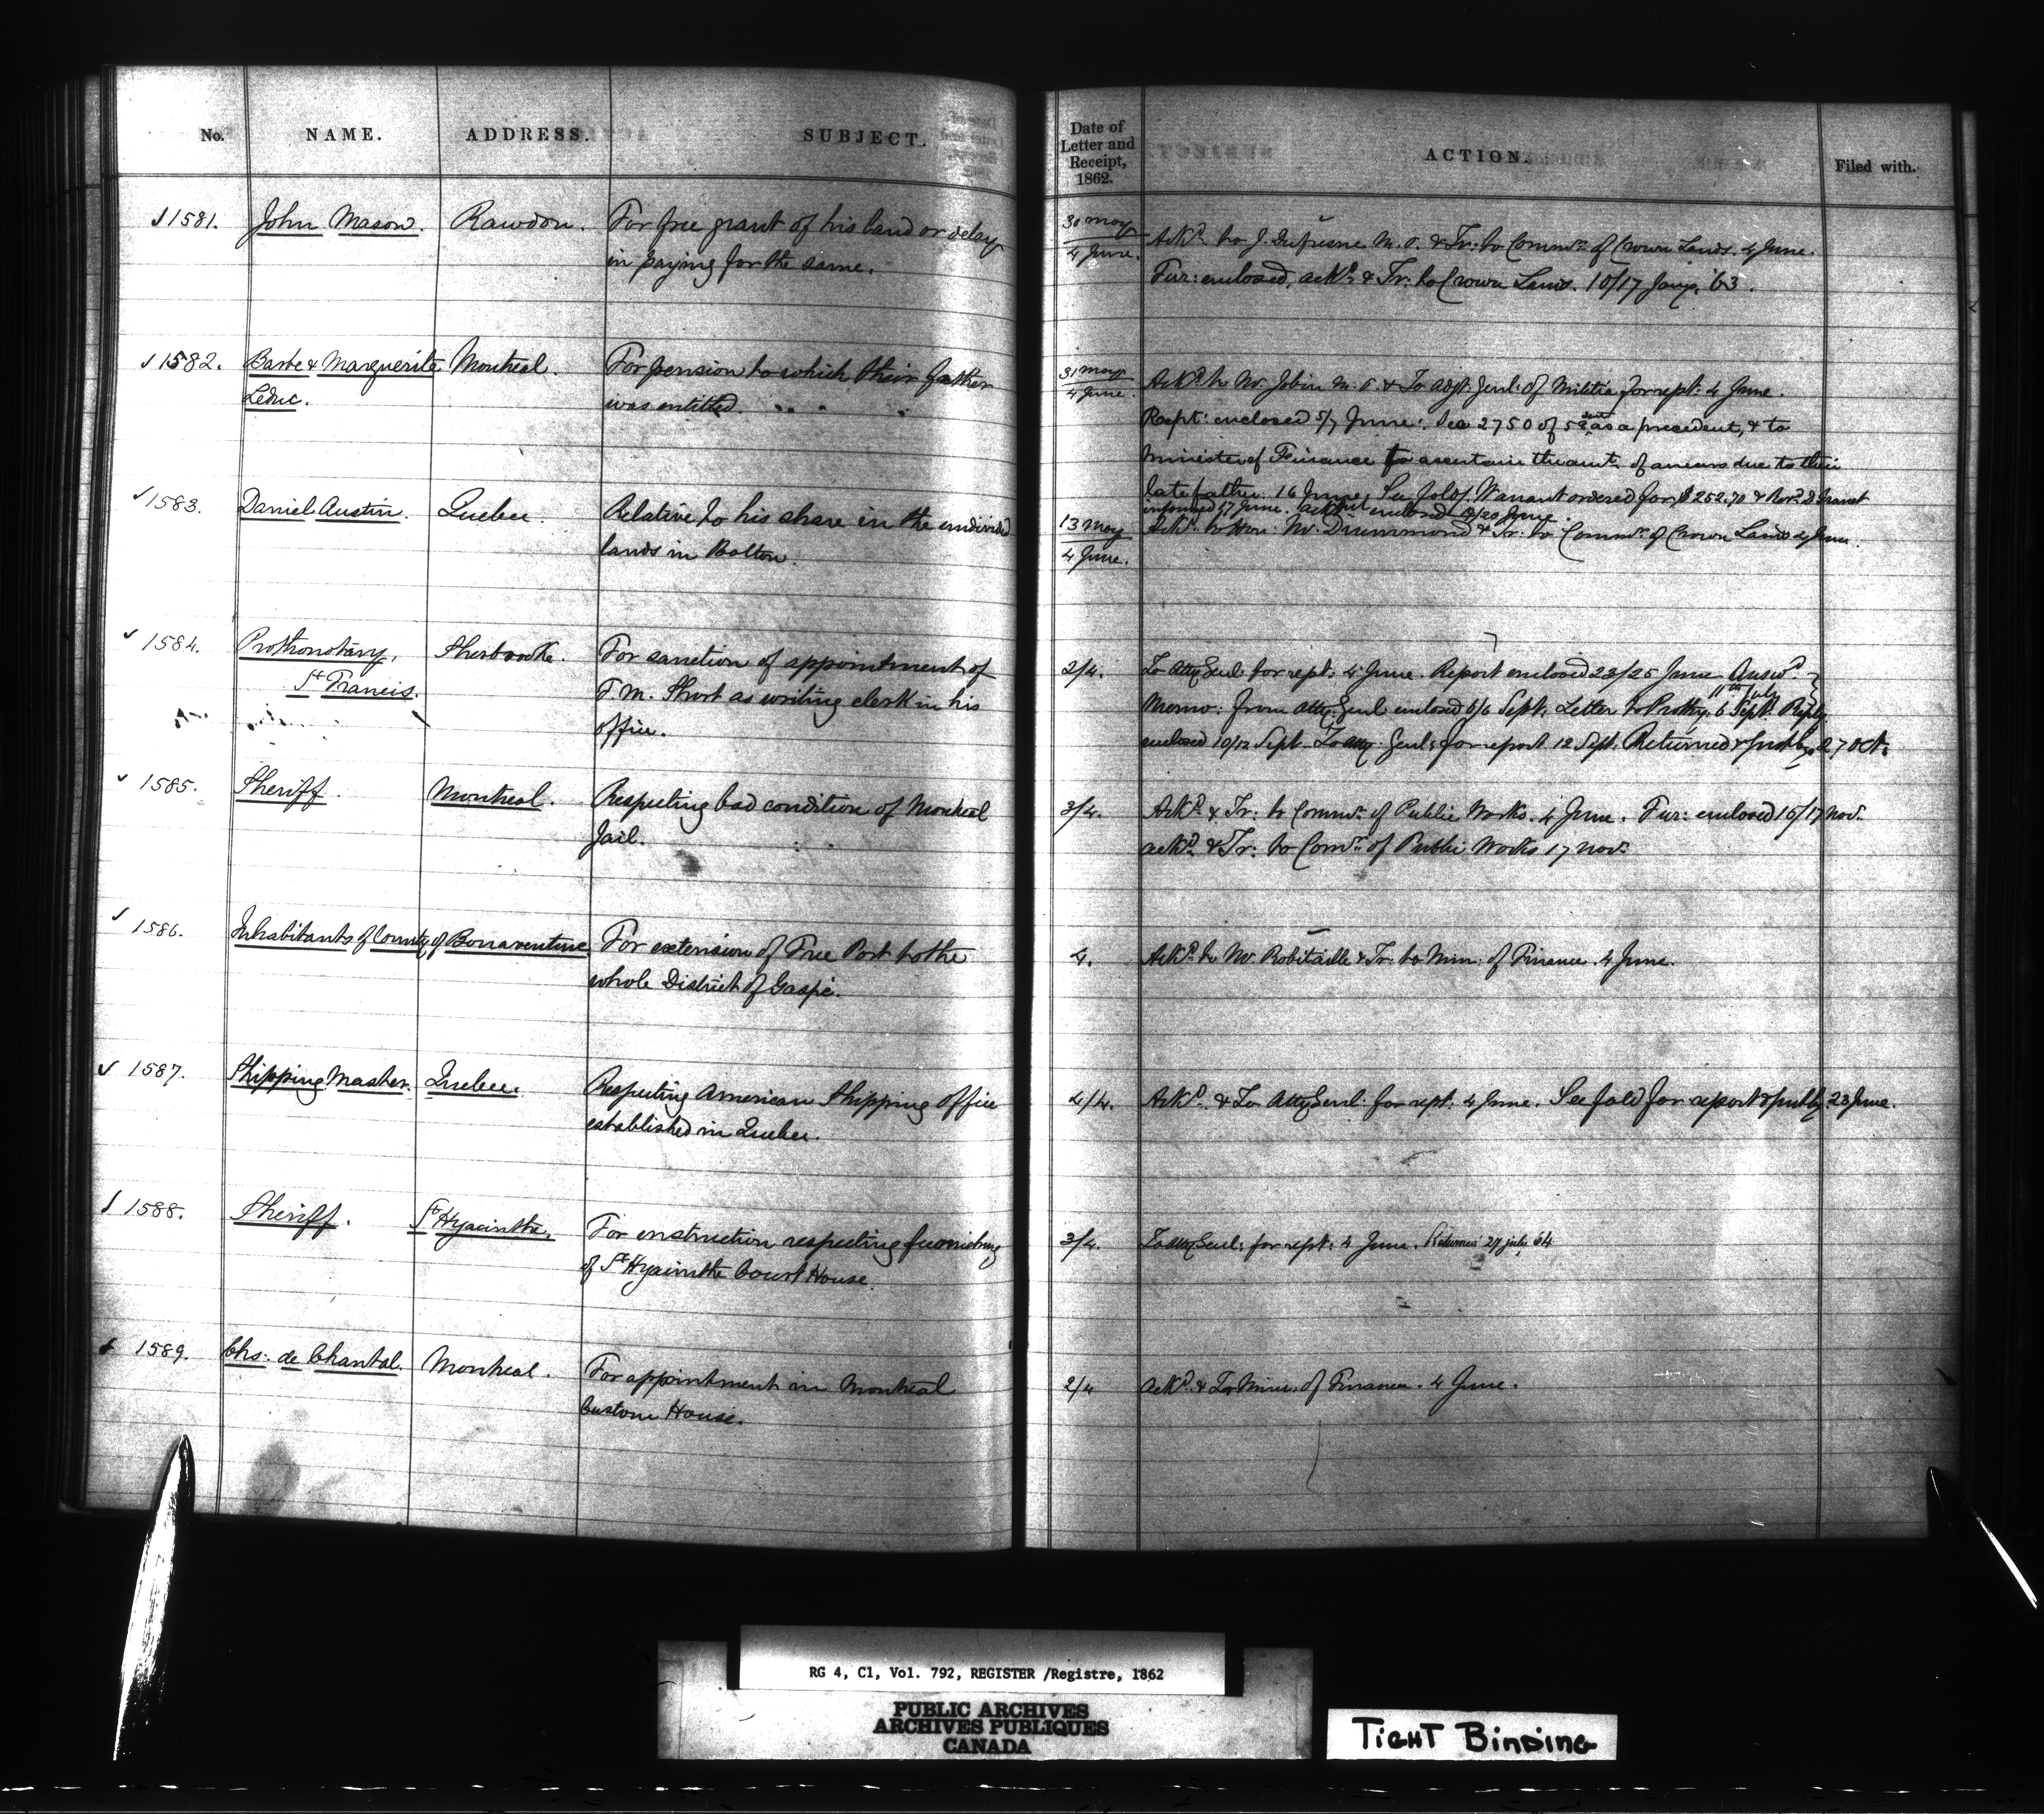 No. NAME. ADDRESS. SUBJECT.
Date of Letter and Receipt, 1862. ACTION. Filed with.
1581. John Mason. Rawdon. For free grant of his land or delay
in paying for the same.
30 May
4 June.
Ackd. to J. Dufresne M.P. & Tr: to Commr. of Crown Lands. 4 June.
Fur: enclosed, ackd. & Tr: to Crown Lands. 10/17 Jany. '63.
1582. Barbe & Marguerite Montreal. For pension to which their father
Leduc. was entitled.
31 May
4 June.
Ackd. to Mr. Jobin M.P. & To Adjt. Genl: of Militia for rept: 4 June.
Rept: enclosed 5/7 June. See 2750 of 52 as a precedent, & to
Minister of Finance to ascertain the amt. of arrears due to their
late father. 16 June, See fold. Warrant ordered for $252.70 & Revd.
informed 17 June. enclosed /20 June.
1583. Daniel Austin. Quebec. Relative to his share in the undivided
lands in Bolton.
13 May
4 June.
Ackd. to Hon: Mr. Drummond & Tr: to Commr. of Crown Lands 4 June.
1584. Prothonotary, Sherbrooke. For sanction of appointment of
St Francis. F. M. Short as writing clerk in his
office.
2/4. To Atty Genl for rept: 4 June. Report enclosed 23/25 June Answd.
11th July
Memo: from Atty: Genl enclosed 6/6 Sept. Letter to Prothy. 6 Sept. Reply
enclosed 10/12 Sept. To Atty: Genl: for report 12 Sept. Returned & put by. 27 Oct.
1585. Sheriff. Montreal. Respecting bad condition of Montreal
Jail.
3/4. Ackd. & Tr: to Commr. of Public Works. 4 June. Fur: enclosed 15/17 Nov.
ackd. & Tr: to Comr. of Public Works 17 Nov.
1586. Inhabitants of County of Bonaventure For extension of Free Port to the
whole District of Gaspé.
4. Ackd. to Mr. Robitaille & Tr: to Min: of Finance. 4 June.
1587. Shipping Master. Quebec. Respecting American Shipping Office
established in Quebec.
4/4. Ackd. & To Atty Genl: for rept: 4 June. See fold for report & put by. 23 June.
1588. Sheriff. St Hyacinthe. For instruction respecting furnishing
of St Hyacinthe Court House.
3/4. To Atty Genl: for rept: 4 June. Returned 27 July 64
1589. Chs: de Chantal. Montreal. For appointment in Montreal
Custom House.
2/4 Ackd. & To Minr. of Finance. 4 June.
RG 4, C1, Vol. 792, REGISTER /Registre, 1862
PUBLIC ARCHIVES
ARCHIVES PUBLIQUES
CANADA
TIGHT BINDING